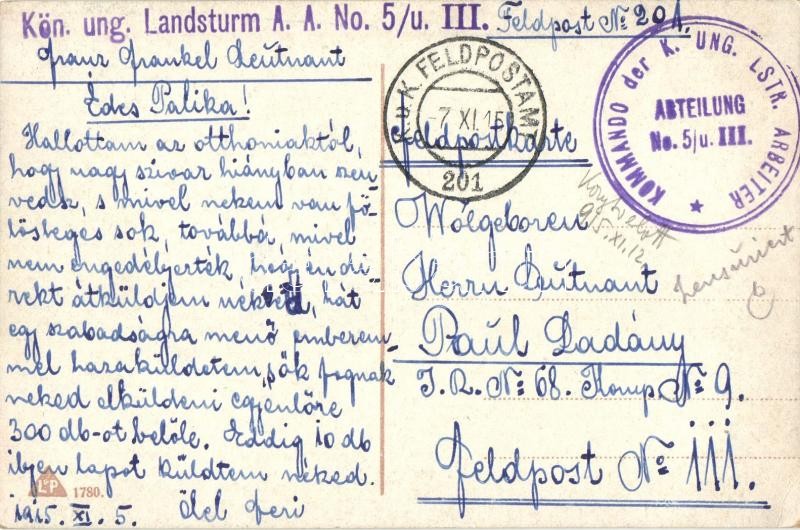 Kön. ung. Landsturm A. A. No. 5/u. III. Feldpost № 20A.
Franz Frankel Leutnant
Édes Palika!
Hallottam az otthoniaktól,
hogy nagy szivar hiányban szen-
vedsz, s mivel nekem van fö-
lösleges sok, továbbá, mivel
nem engedélyezték, hogy én di-
rekt átküldjem néked, hát
egy szabadságra menő emberem-
mel hazaküldetem, s ők fognak
neked elküldeni egyenlőre
300 db-ot belőle. Eddig 10 db
ilyen lapot küldtem néked.
1915. XI. 5. Ölel Feri
L&P 1780.
K.u.K. FELDPOSTAMT
-7 XI 15
201
KOMMANDO der K. UNG. LSTR. ARBEITER
ABTEILUNG
No. 5/u. III.
Feldpostkarte
915. XI. 12
zensuriert
Wólgeboren
Herrn Leutnant
Paul Ladány
I. R. № 68. Komp. № 9.
Feldpost № III.